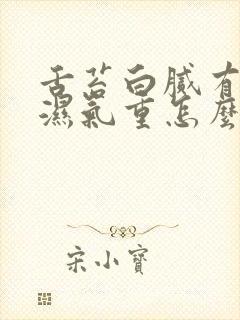 舌苔白膩有
濕氣重怎麼
宋小寶